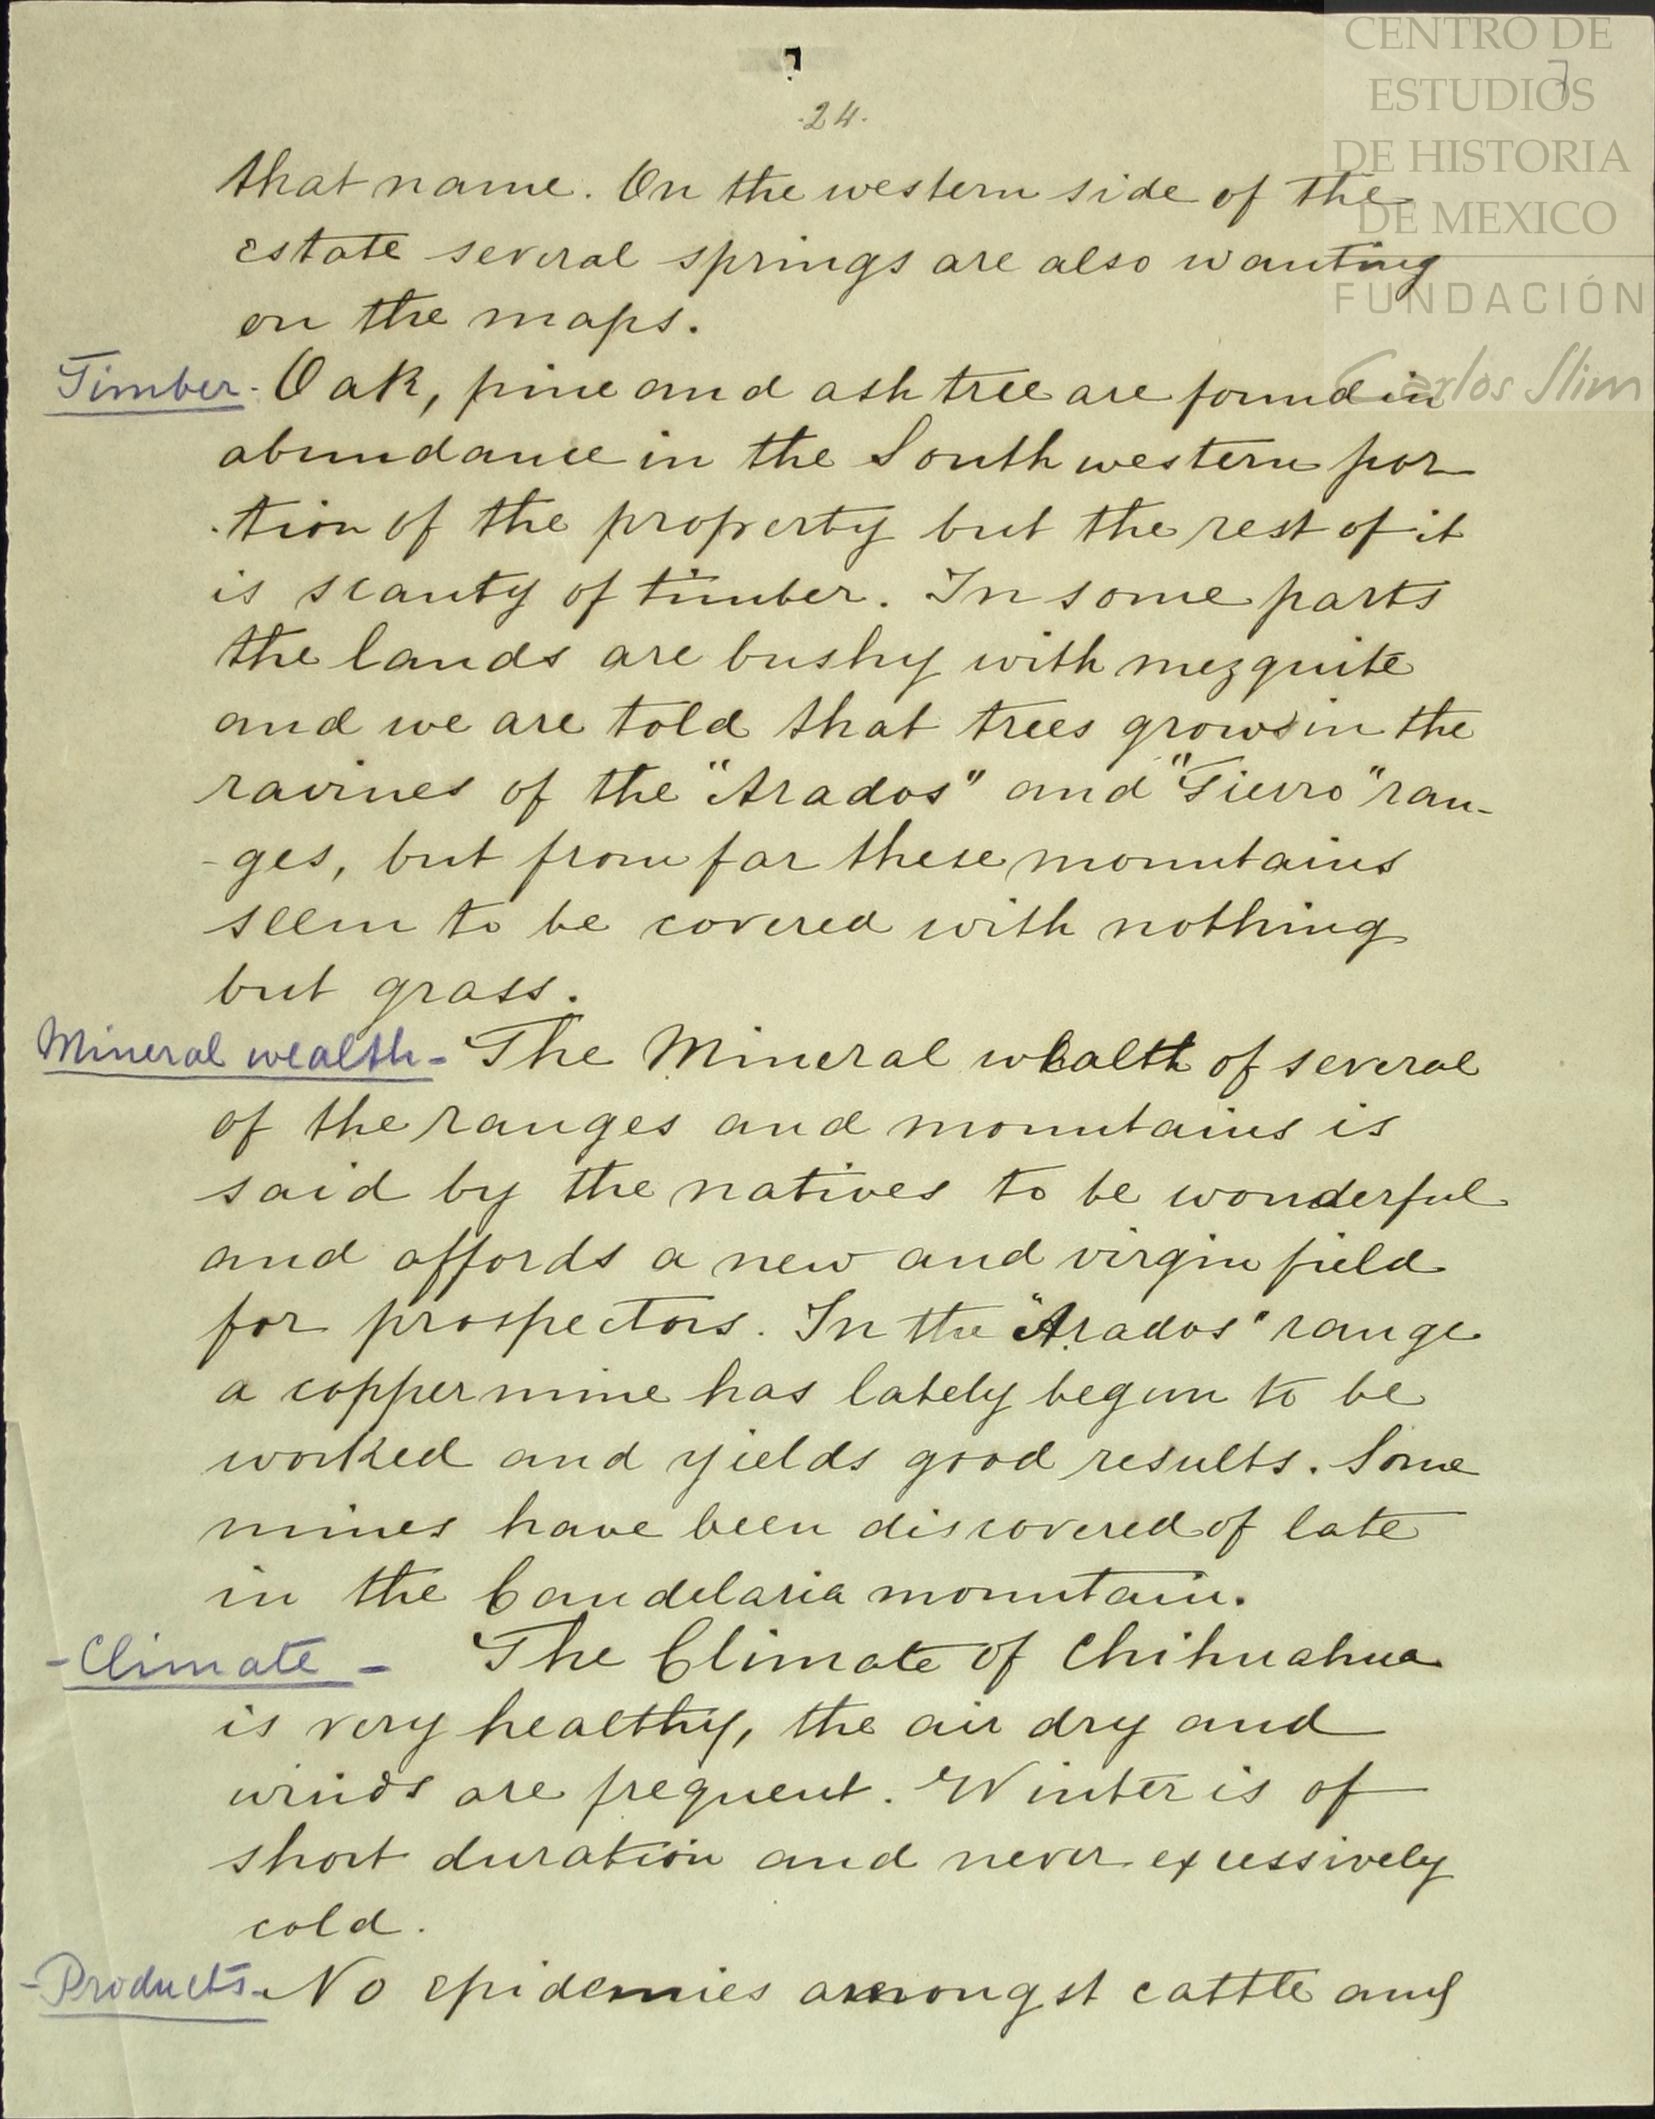 CENTRO DE
ESTUDIOS
DE HISTORIA
DE MEXICO
FUNDACIÓN
Carlos Slim
7
.24.
that name. On the western side of the
estate several springs are also wanting
on the maps.
Timber - Oak, pine and ash tree are found in
abundance in the South western por
-tion of the property but the rest of it
is scanty of timber. In some parts
the lands are bushy with mezquite
and we are told that trees grows in the
ravines of the "Arados" and "Fierro" ran-
-ges, but from far these mountains
seem to be covered with nothing
but grass.
Mineral wealth - The Mineral wealth of several
of the ranges and mountains is
said by the natives to be wonderful
and affords a new and virgin field
for prospectors. In the "Arados" range
a copper mine has lately begun to be
worked and yields good results. Some
mines have been discovered of late
in the Candelaria mountain.
- Climate - The Climate of Chihuahua
is very healthy, the air dry and
winds are frequent. Winter is of
short duration and never excessively
cold.
- Products - No epidemies amongst cattle and